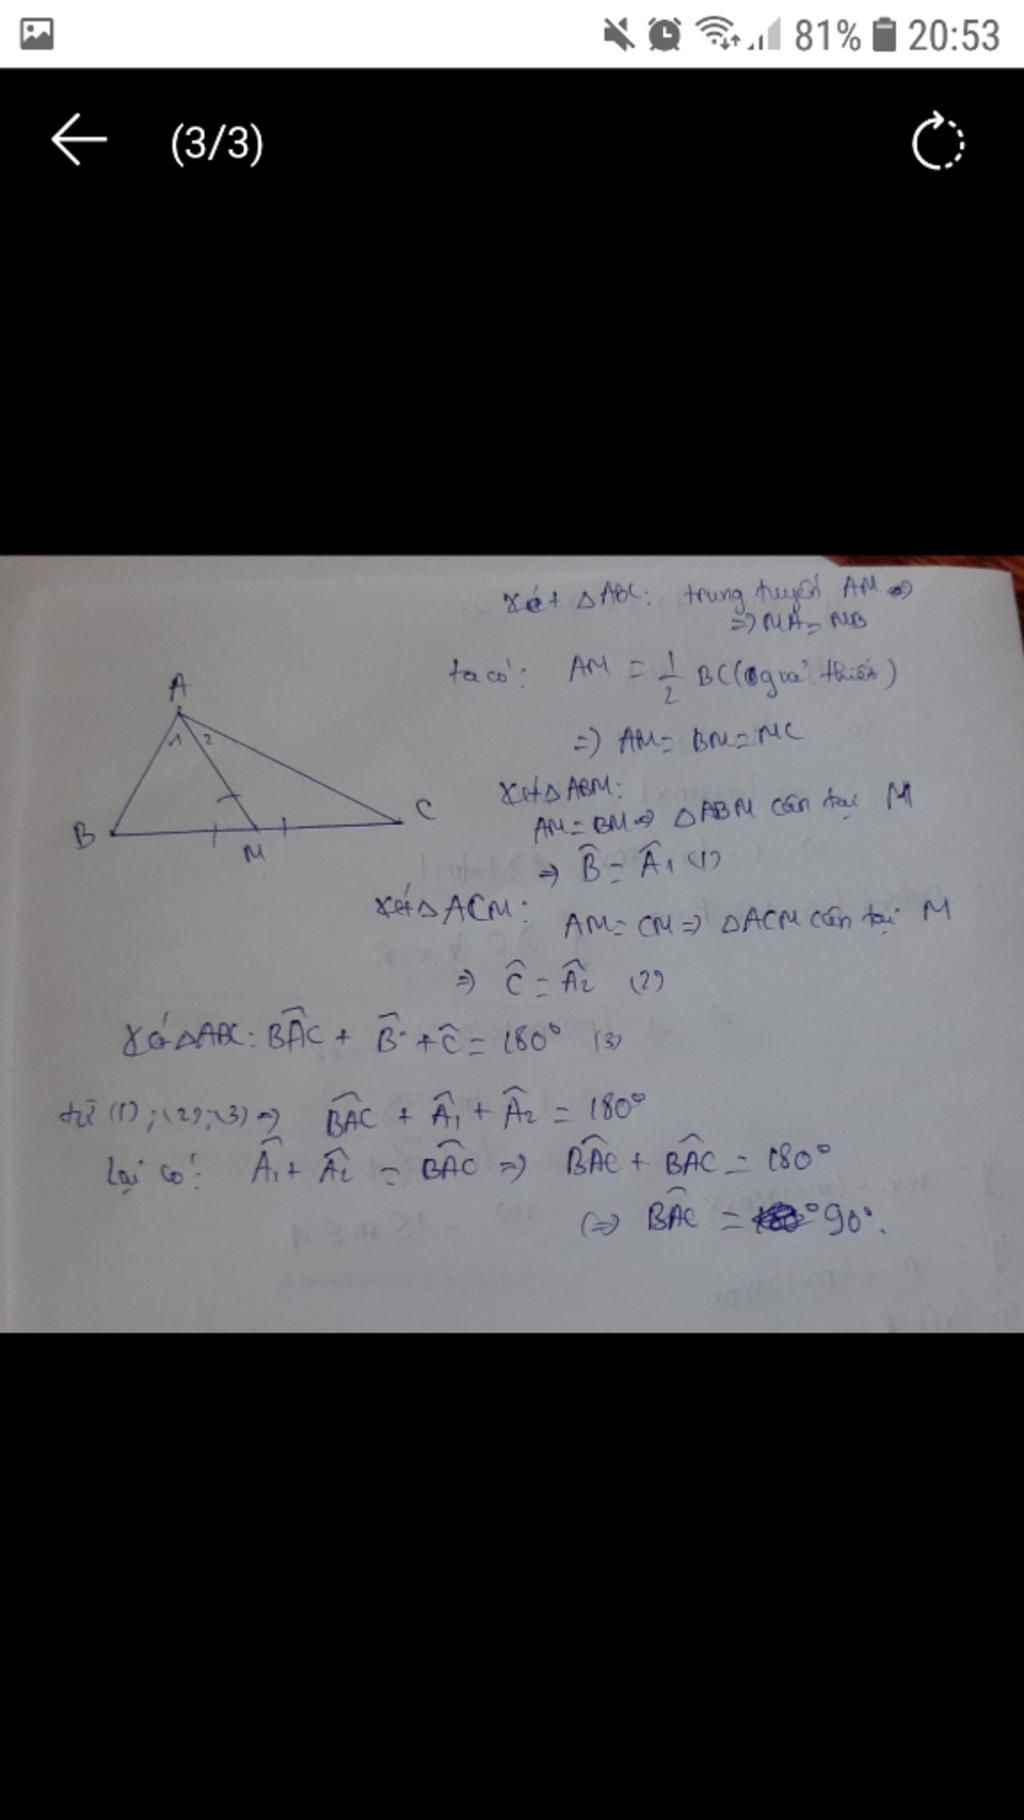 81% 20:53
(3/3)
Xét △ABC: trung tuyến AM ⇒
⇒ MA = MB
ta có: AM = 1/2 BC (giả thiết)
⇒ AM = BM = MC
A
1 2
B
M
C
Xét △ABM:
AM = BM ⇒ △ABM cân tại M
⇒ B̂ = Â₁ (1)
Xét △ACM:
AM = CM ⇒ △ACM cân tại M
⇒ Ĉ = Â₂ (2)
Xét △ABC: BÂC + B̂ + Ĉ = 180° (3)
từ (1); (2); (3) ⇒ BÂC + Â₁ + Â₂ = 180°
Lại có: Â₁ + Â₂ = BÂC ⇒ BÂC + BÂC = 180°
(⇒ BÂC = 90°.